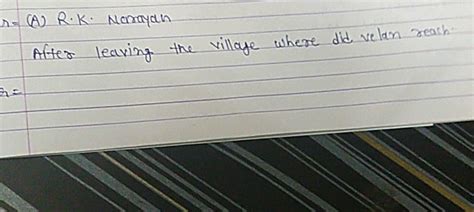 (A) R.K. Narayan
After leaving the village where did velan reach.